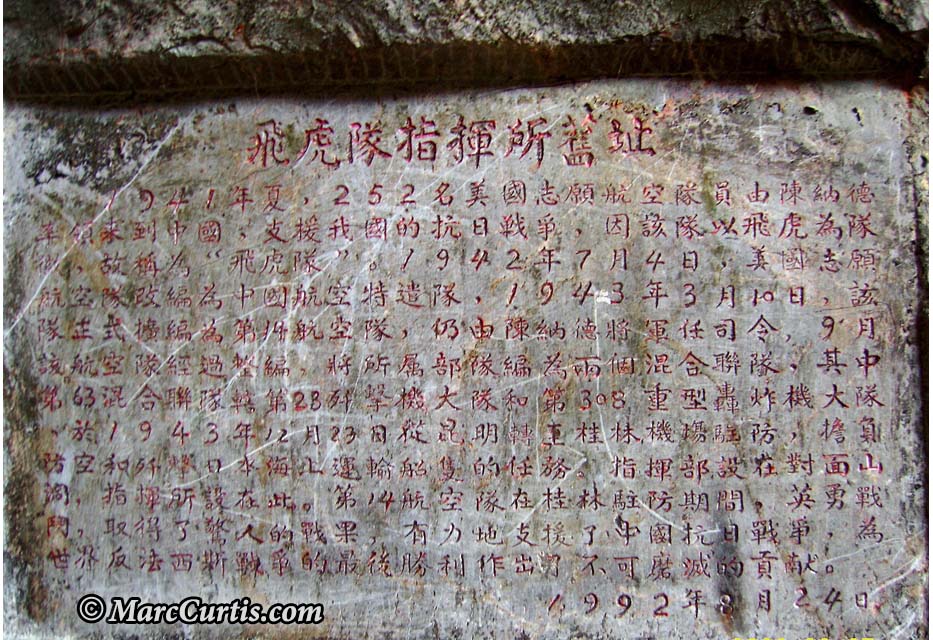 飛虎隊指揮所舊址
1941年,夏,252名美國志願航空隊員由陳納德
率領來到中國,支援我國的抗日戰爭,因該隊以飛虎為隊
徽,故稱為“飛虎隊”。1942年7月4日,美國志願
航空隊改編為中國航空特遣隊,1943年3月10日,該
隊正式擴編為第14航空隊,仍由陳納德將軍任司令,9月
該航空隊經過整編,將所属部隊編為兩個混合聯隊,其中
第68混合聯隊轄第23大隊和第308重型轟炸機大隊
、於1943年12月23日從昆明轉至桂林機場駐防,擔負
防空和歼擊日本海上運輸船隻的任務。指揮部設在對面山
洞,指揮所設在此。第14航空隊在桂林駐防期間,英勇戰
鬥,取得了驚人的戰果,有力地支援了中國抗日戰爭,為
世界反法西斯戰爭的最後勝利作出不可磨滅的貢献。
1992年8月24日
© MarcCurtis.com